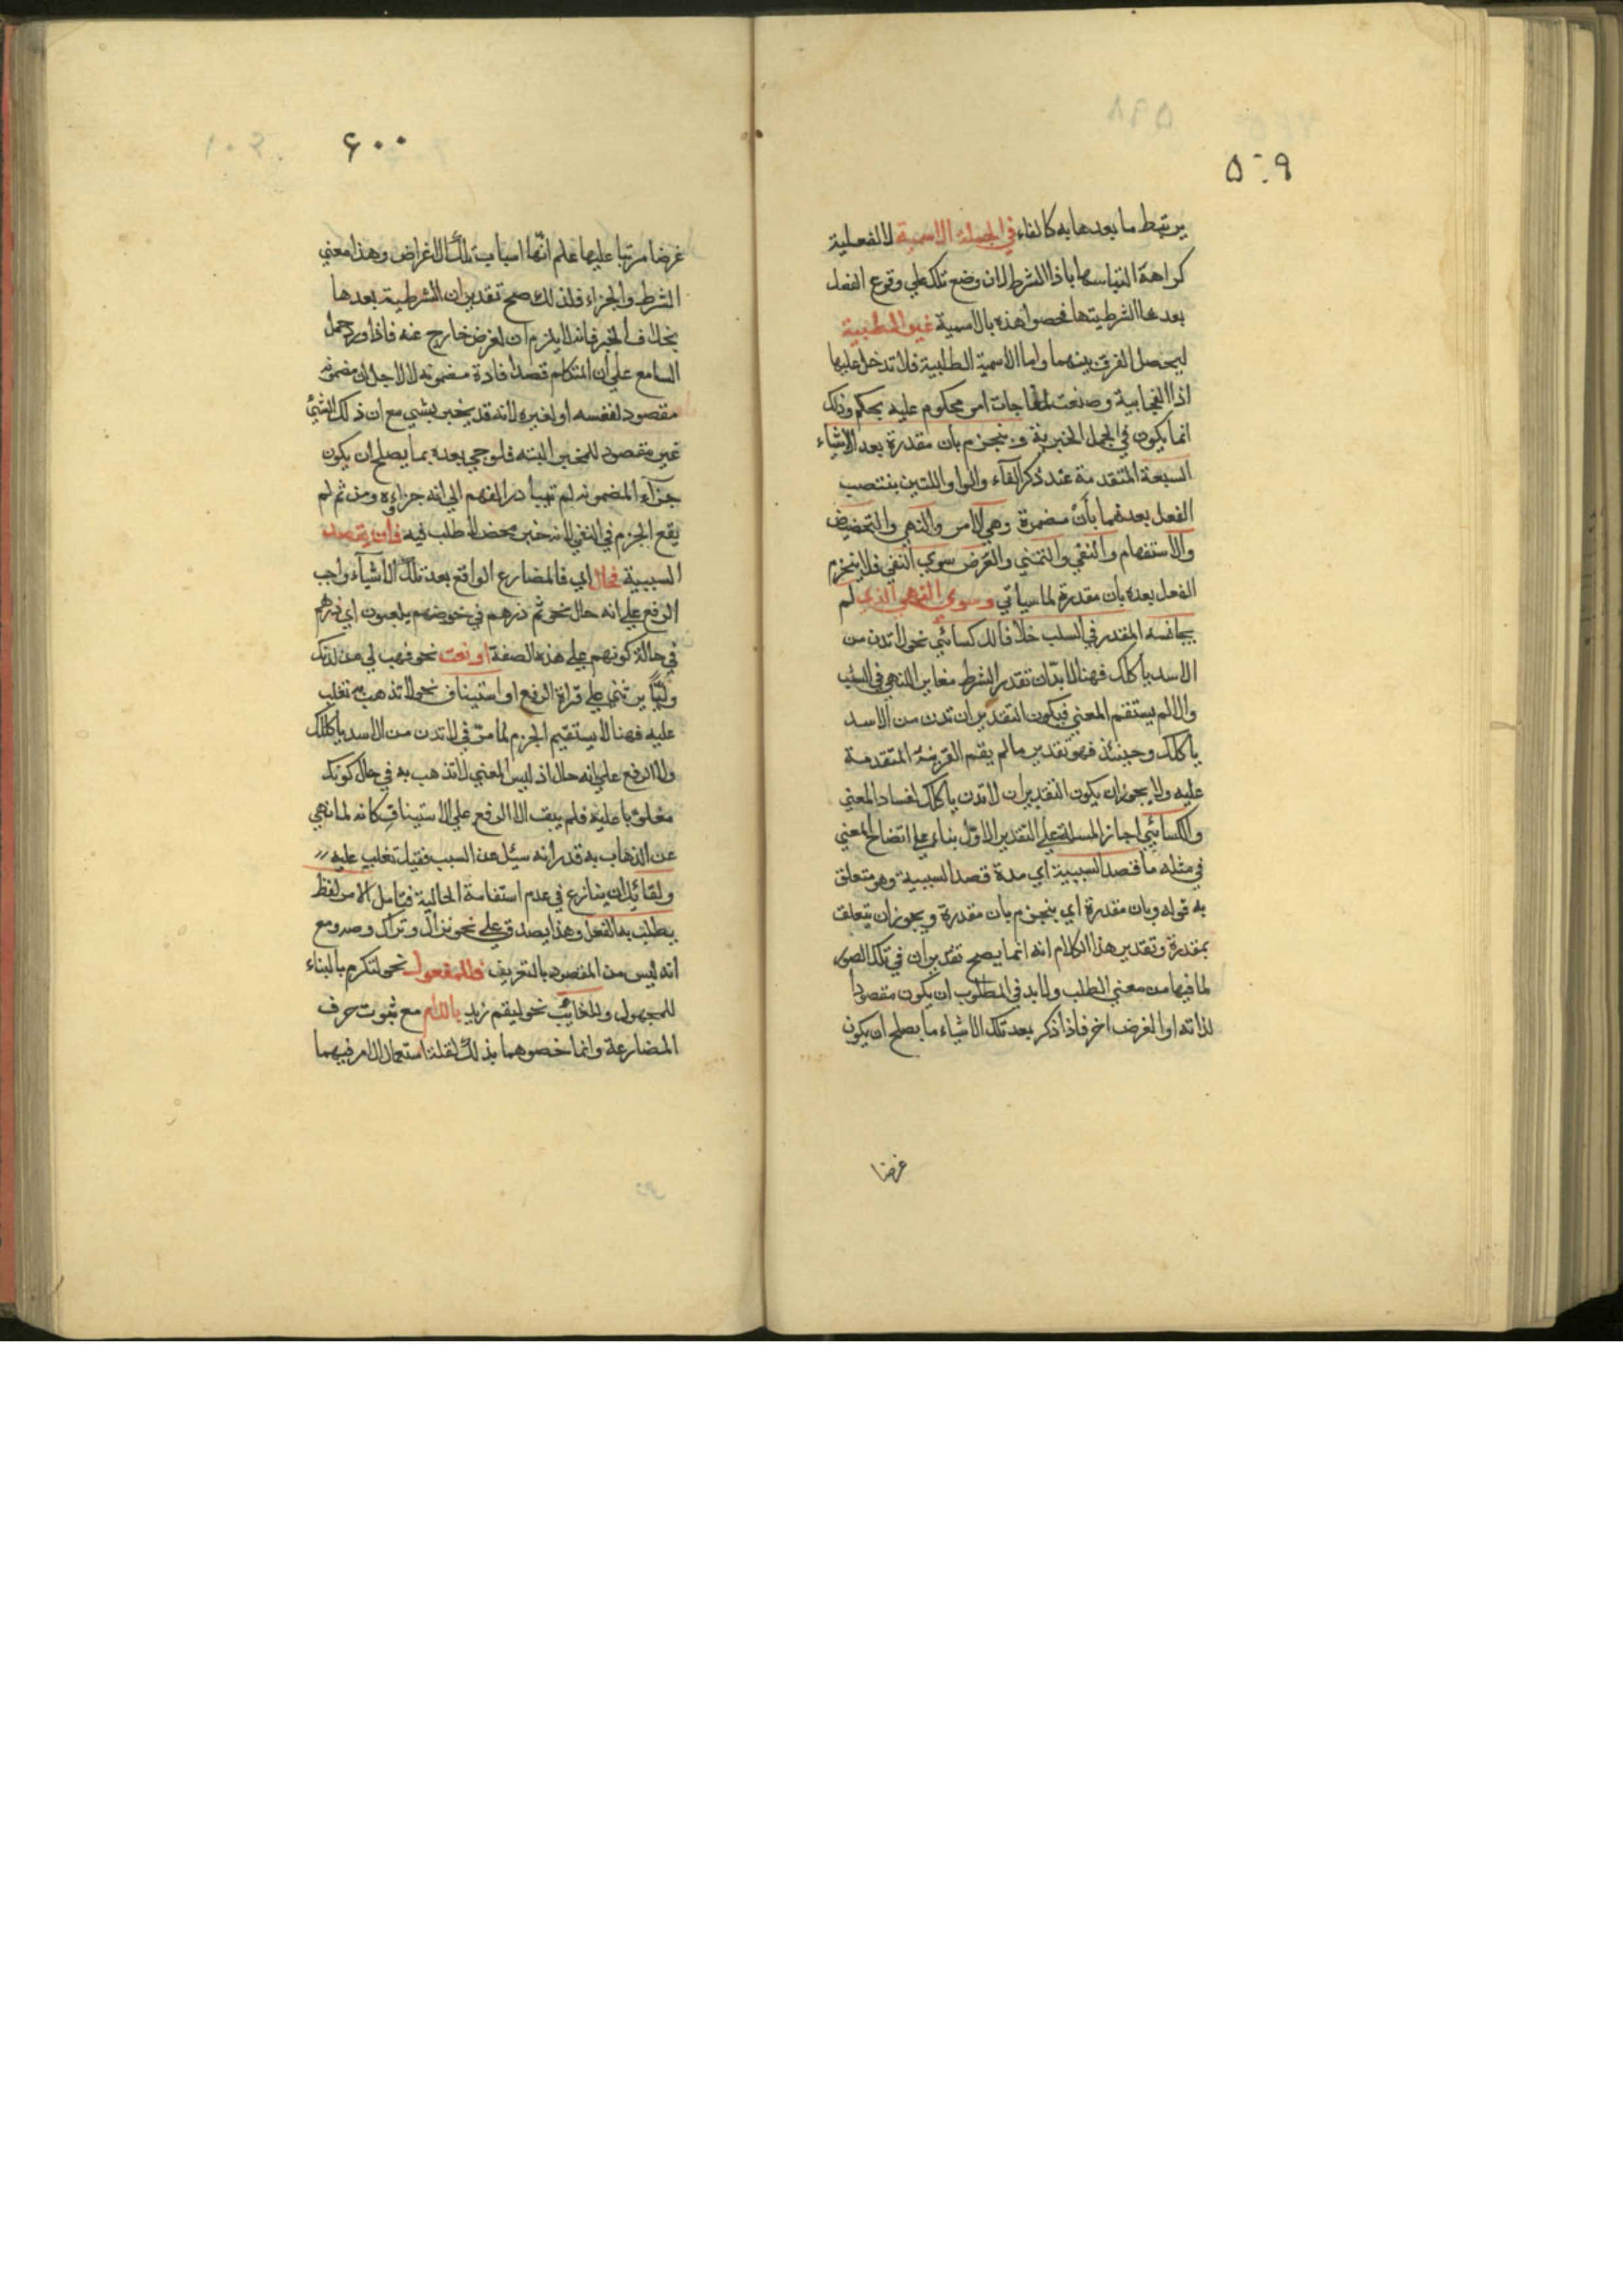 ٥٠٩
يرتبط ما بعدها به كالفاء في الجملة الاسمية لا الفعلية
كراهة التباسها باذا الشرط لان وضع تلك علي وقوع الفعل
بعدها الشرطيتها فخصوا هذه بالاسمية غير الطلبية
ليحصل الفرق بينهما واما الاسمية الطلبية فلا تدخل عليها
اذا الفجايية وصنعت لمفاجات امر محكوم عليه بحكم وذلك
انما يكون في الجمل الخبرية و ينجزم بان مقدرة بعد الاشياء
السبعة المتقدمة عند ذكر الفآء والواو اللتين ينتصب
الفعل بعدهما بأن مضمرة وهي الامر والنهي والتحضيض
والاستفهام والنفي والتمني والعرض سوي النفي فلا ينجزم
الفعل بعده بان مقدرة لما سياتي وسوي النهي الذي لم
يجانسه المقدر في السلب خلافا لك كسائي نحو لا تدن من
الاسد يأكلك فهنا لا بدّ ان تقدر الشرط مغاير للنهي في السلب
والا لم يستقم المعني فيكون التقدير ان تدن من الاسد
يأكلك وحينئذ فهو تقدير ما لم يقم القرينة المتقدمة
عليه ولا يجوز ان يكون التقدير ان لا تدن يأكلك لفساد المعني
والكسائي اجاز المسلة علي التقدير الاول بناء علي اتضاح المعني
في مثله ما قصد السببية اي مدة قصد السببية وهو متعلق
به قوله وبان مقدرة اي ينجزم بان مقدرة ويجوز ان يتعلق
بمقدرة وتقدير هذا الكلام انه انما يصح تقدير ان في تلك الصور
لما فيها من معني الطلب ولا بد في المطلوب ان يكون مقصودا
لذاته او الغرض اخر فاذا ذكر بعد تلك الاشياء ما يصلح ان يكون
غرضا
۶۰۰
غرضا مرتبا عليها علم انّها اسباب تلك الاغراض وهذا معني
الشرط والجزاء فلذلك صح تقدير ان الشرطية بعدها
بخلاف الخبر فانه لا يلزم ان لغرض خارج عنه فاذا ورد حمل
السامع علي ان المتكلم قصد افادة مضمونه لا لاجل ان مضمونه
مقصود لنفسه او لغيره لانه قد يخبر بشيي مع ان ذلك الشيئ
غير مقصود للمخبر البته فلو جي بعده بما يصلح ان يكون
جزآء لمضمونه لم تتبادر الفهم الي انه جزاءه ومن ثم لم
يقع الجزم في النفي لانه خبر محض لا طلب فيه فان لم تقصد
السببية فحال اي فالمضارع الواقع بعد تلك الاشيآء واجب
الرفع علي انه حال نحو ثم ذرهم في خوضهم يلعبون اي ذرهم
في حالة كونهم علي هذه الصفة او نعت نحو فهب لي من لدنك
وليّا يرثني علي قراة الرفع او استيناف نحو لا تذهب به تغلب
عليه فهنا لا يستقيم الجزم لما مرّ في لا تدن من الاسد يأكلك
ولا الرفع علي انه حال اذ ليس المعني لا تذهب به في حال كونك
مغلوبا عليه فلم يبق الا الرفع علي الاستيناف كانه لما نهي
عن الذهاب به قدر انه سئل عن السبب فقيل تغلب عليه
ولقائل ان ينازع في عدم استقامة الحالية فتامل الامر لفظ
يطلب به الفعل وهذا يصدق علي نحو نزال وتراك وصه ومع
انه ليس من المقصود بالتعريف فللمفعول نحو لتكرم بالبناء
للمجهول وللغائب نحو ليقم زيد باللام مع ثبوت حرف
المضارعة وانما خصوهما بذلك لقلة استعمال الامر فيهما